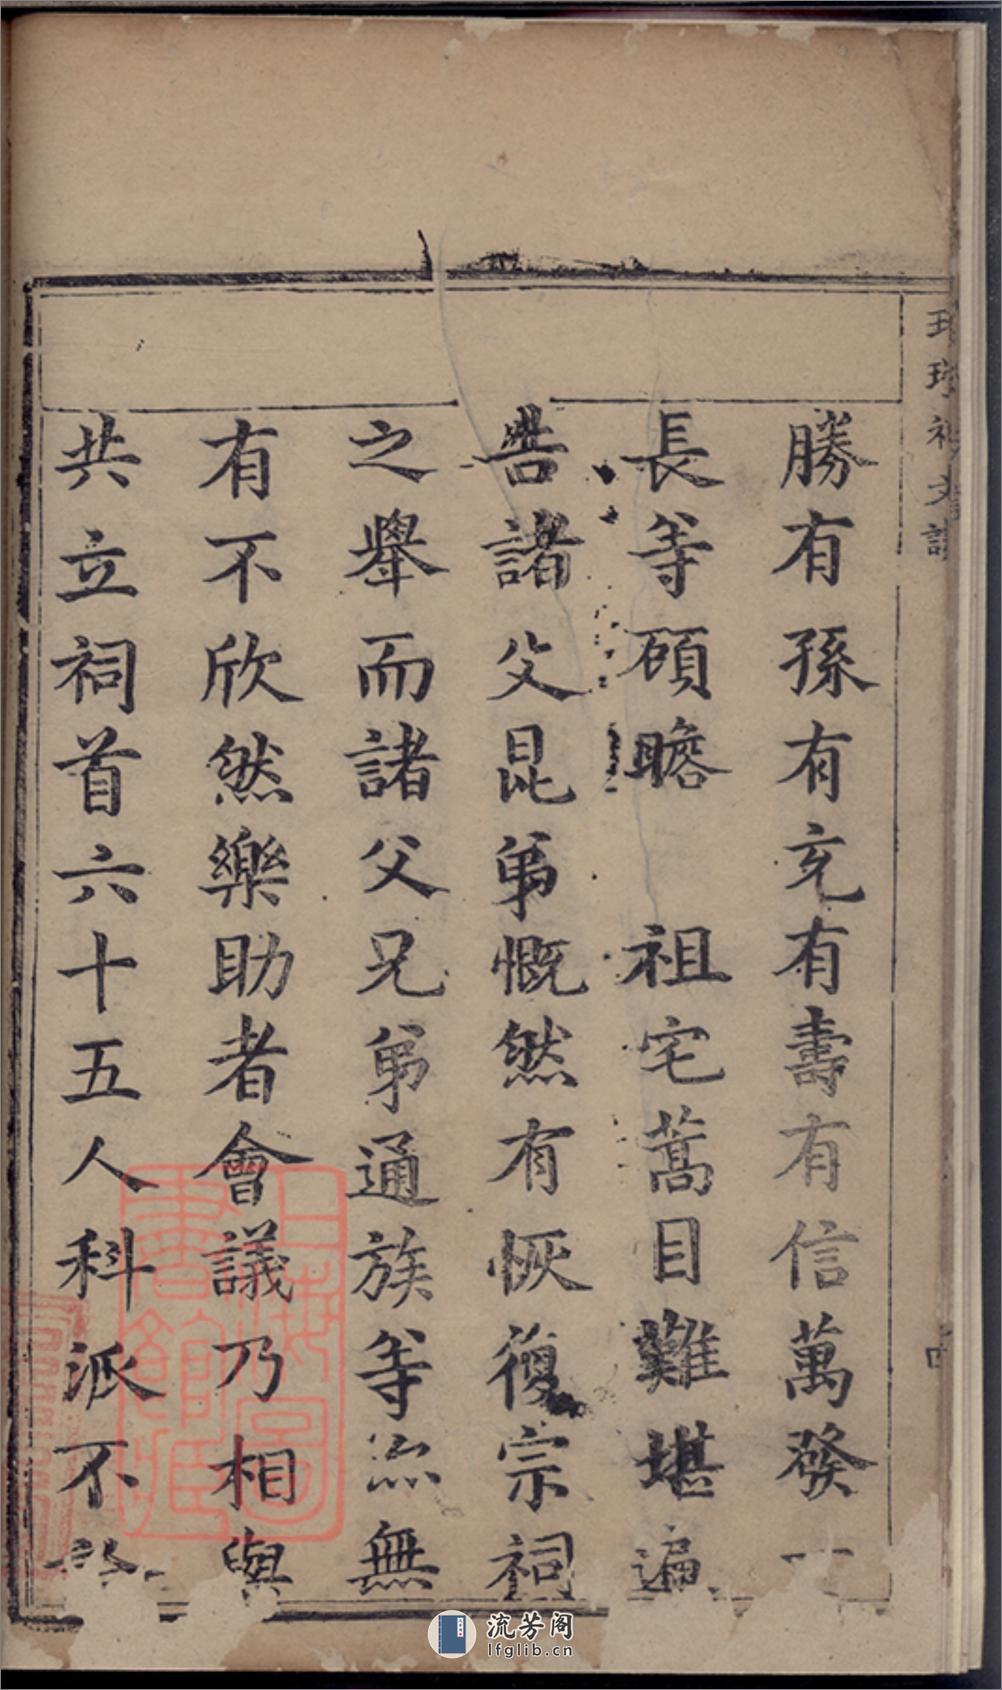 勝有孫有充有壽有信萬發一
長等碩瞻　祖宅蒿目難堪遍
告諸父昆弟慨然有恢復宗祠
之舉而諸父兄弟通族等無
有不欣然樂助者會議乃相與
共立祠首六十五人科派不
四
上海圖書館藏
流芳阁
lfglib.cn